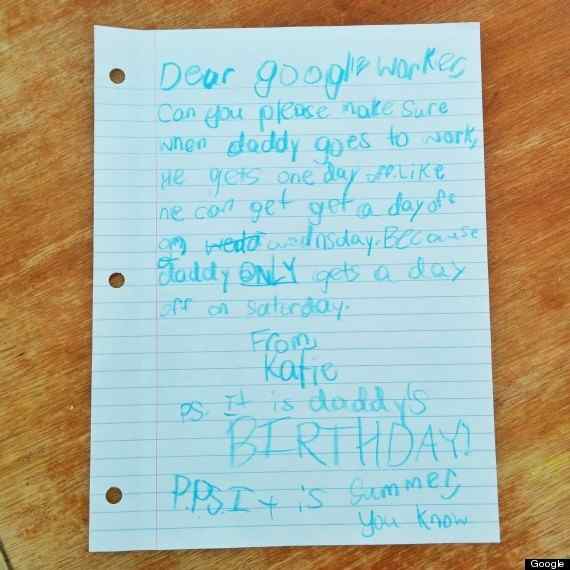 Dear google worker,
Can you please make sure
when daddy goes to work,
He gets one day off. Like
he can get get a day off
on wedo wednsday. Because
daddy ONLY gets a day
off on saturday.
From,
Katie
ps. It is daddy's
BIRTHDAY!
P.P.S It is summer,
you know
Google